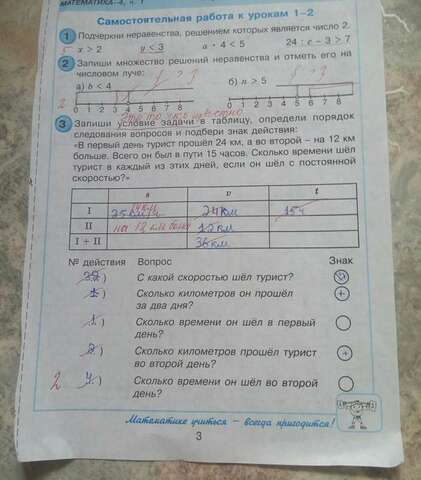 МАТЕМАТИКА–4, ч. 1
Самостоятельная работа к урокам 1–2
1 Подчеркни неравенства, решением которых является число 2.
x > 2 y < 3 a · 4 < 5 24 : c – 3 > 7
2 Запиши множество решений неравенства и отметь его на
числовом луче:
а) b < 4 б) n > 5
0 1 2 3 4 5 6 7 8 0 1 2 3 4 5 6 7 8
3 Запиши условие задачи в таблицу, определи порядок
следования вопросов и подбери знак действия:
«В первый день турист прошёл 24 км, а во второй – на 12 км
больше. Всего он был в пути 15 часов. Сколько времени шёл
турист в каждый из этих дней, если он шёл с постоянной
скоростью?»
s v t
I 24 км 15ч
II на 12 км 12 км
I + II 36 км
№ действия Вопрос Знак
) С какой скоростью шёл турист?
) Сколько километров он прошёл +
за два дня?
1) Сколько времени он шёл в первый
день?
) Сколько километров прошёл турист +
во второй день?
2 ) Сколько времени он шёл во второй
день?
Математике учиться – всегда пригодится!
3